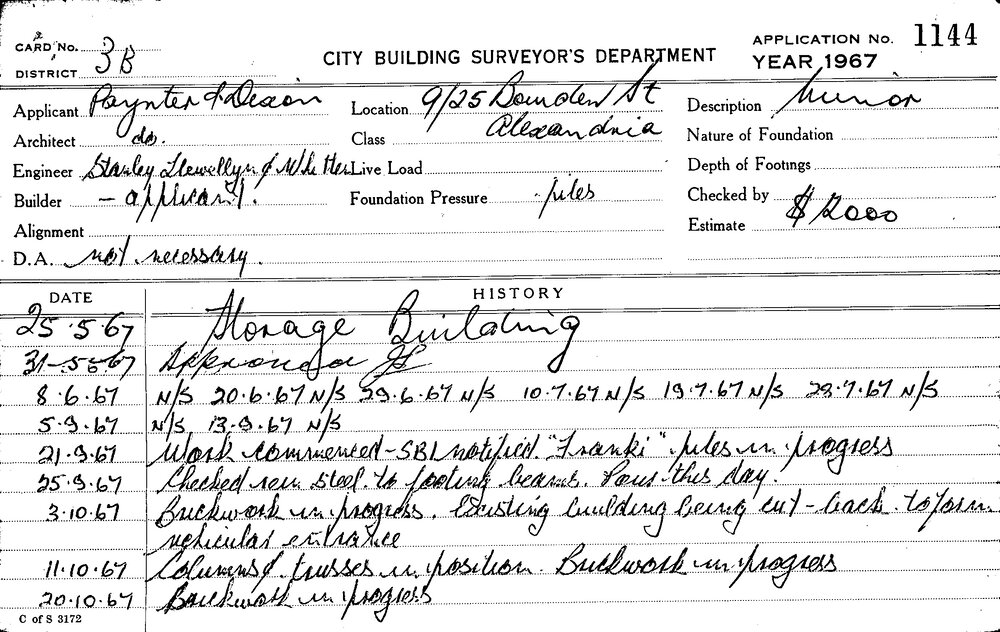 CARD No. 3B
DISTRICT
CITY BUILDING SURVEYOR'S DEPARTMENT
APPLICATION No. 1144
YEAR 1967
Applicant Paynter & Dixon
Location 9/25 Bowden St Alexandria
Description Minor
Architect do.
Class
Nature of Foundation
Engineer Stanley Llewellyn &
Live Load
Depth of Footings
Builder - applicant.
Foundation Pressure piles
Checked by
Estimate $12000
Alignment
D.A. not necessary.
DATE HISTORY
25.5.67 Storage Building
31-5-67 Approved
8.6.67 N/S 20.6.67 N/S 29.6.67 N/S 10.7.67 N/S 19.7.67 N/S 28.7.67 N/S
5.9.67 N/S 13.9.67 N/S
21.9.67 Work commenced - SBI notified. "Franki" piles in progress
25.9.67 Checked rein steel. to footing beams. Pour this day.
3.10.67 Brickwork in progress. Existing building being cut-back. to form
vehicular entrance
11.10.67 Columns & trusses in position. Brickwork in progress
20.10.67 Brickwork in progress
C of S 3172